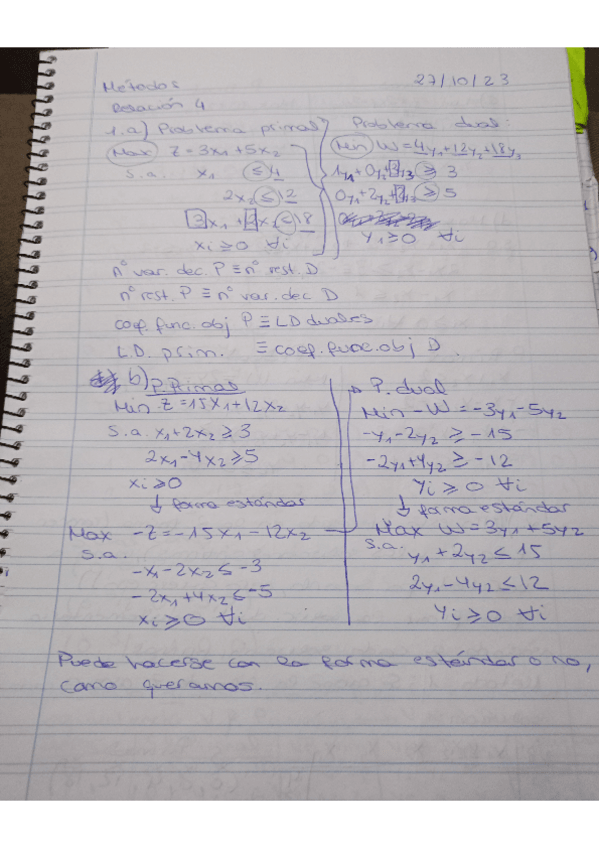 Métodos 27/10/23
Relación 4
1.a) Problema primal
Max Z = 3x₁ + 5x₂
s.a. x₁ ≤ 4
2x₂ ≤ 12
3x₁ + 2x₂ ≤ 18
xᵢ ≥ 0 ∀i
Problema dual:
Min W = 4y₁ + 12y₂ + 18y₃
1y₁ + 0y₂ + 3y₃ ≥ 3
0y₁ + 2y₂ + 2y₃ ≥ 5
y₁ ≥ 0 ∀i
nº var. dec. P ≡ nº rest. D
nº rest. P ≡ nº var. dec D
coef. func. obj P ≡ LD duales
L.D. prim. ≡ coef. func. obj D.
b) P. Primal
Min Z = 15x₁ + 12x₂
s.a. x₁ + 2x₂ ≥ 3
2x₁ - 4x₂ ≥ 5
xᵢ ≥ 0
↓ forma estándar
Max -Z = -15x₁ - 12x₂
s.a.
-x₁ - 2x₂ ≤ -3
-2x₁ + 4x₂ ≤ -5
xᵢ ≥ 0 ∀i
→ P. dual
Min -W = -3y₁ - 5y₂
-y₁ - 2y₂ ≥ -15
-2y₁ + 4y₂ ≥ -12
yᵢ ≥ 0 ∀i
↓ forma estándar
Max W = 3y₁ + 5y₂
s.a. y₁ + 2y₂ ≤ 15
2y₁ - 4y₂ ≤ 12
yᵢ ≥ 0 ∀i
Puede hacerse con la forma estándar o no,
como queramos.